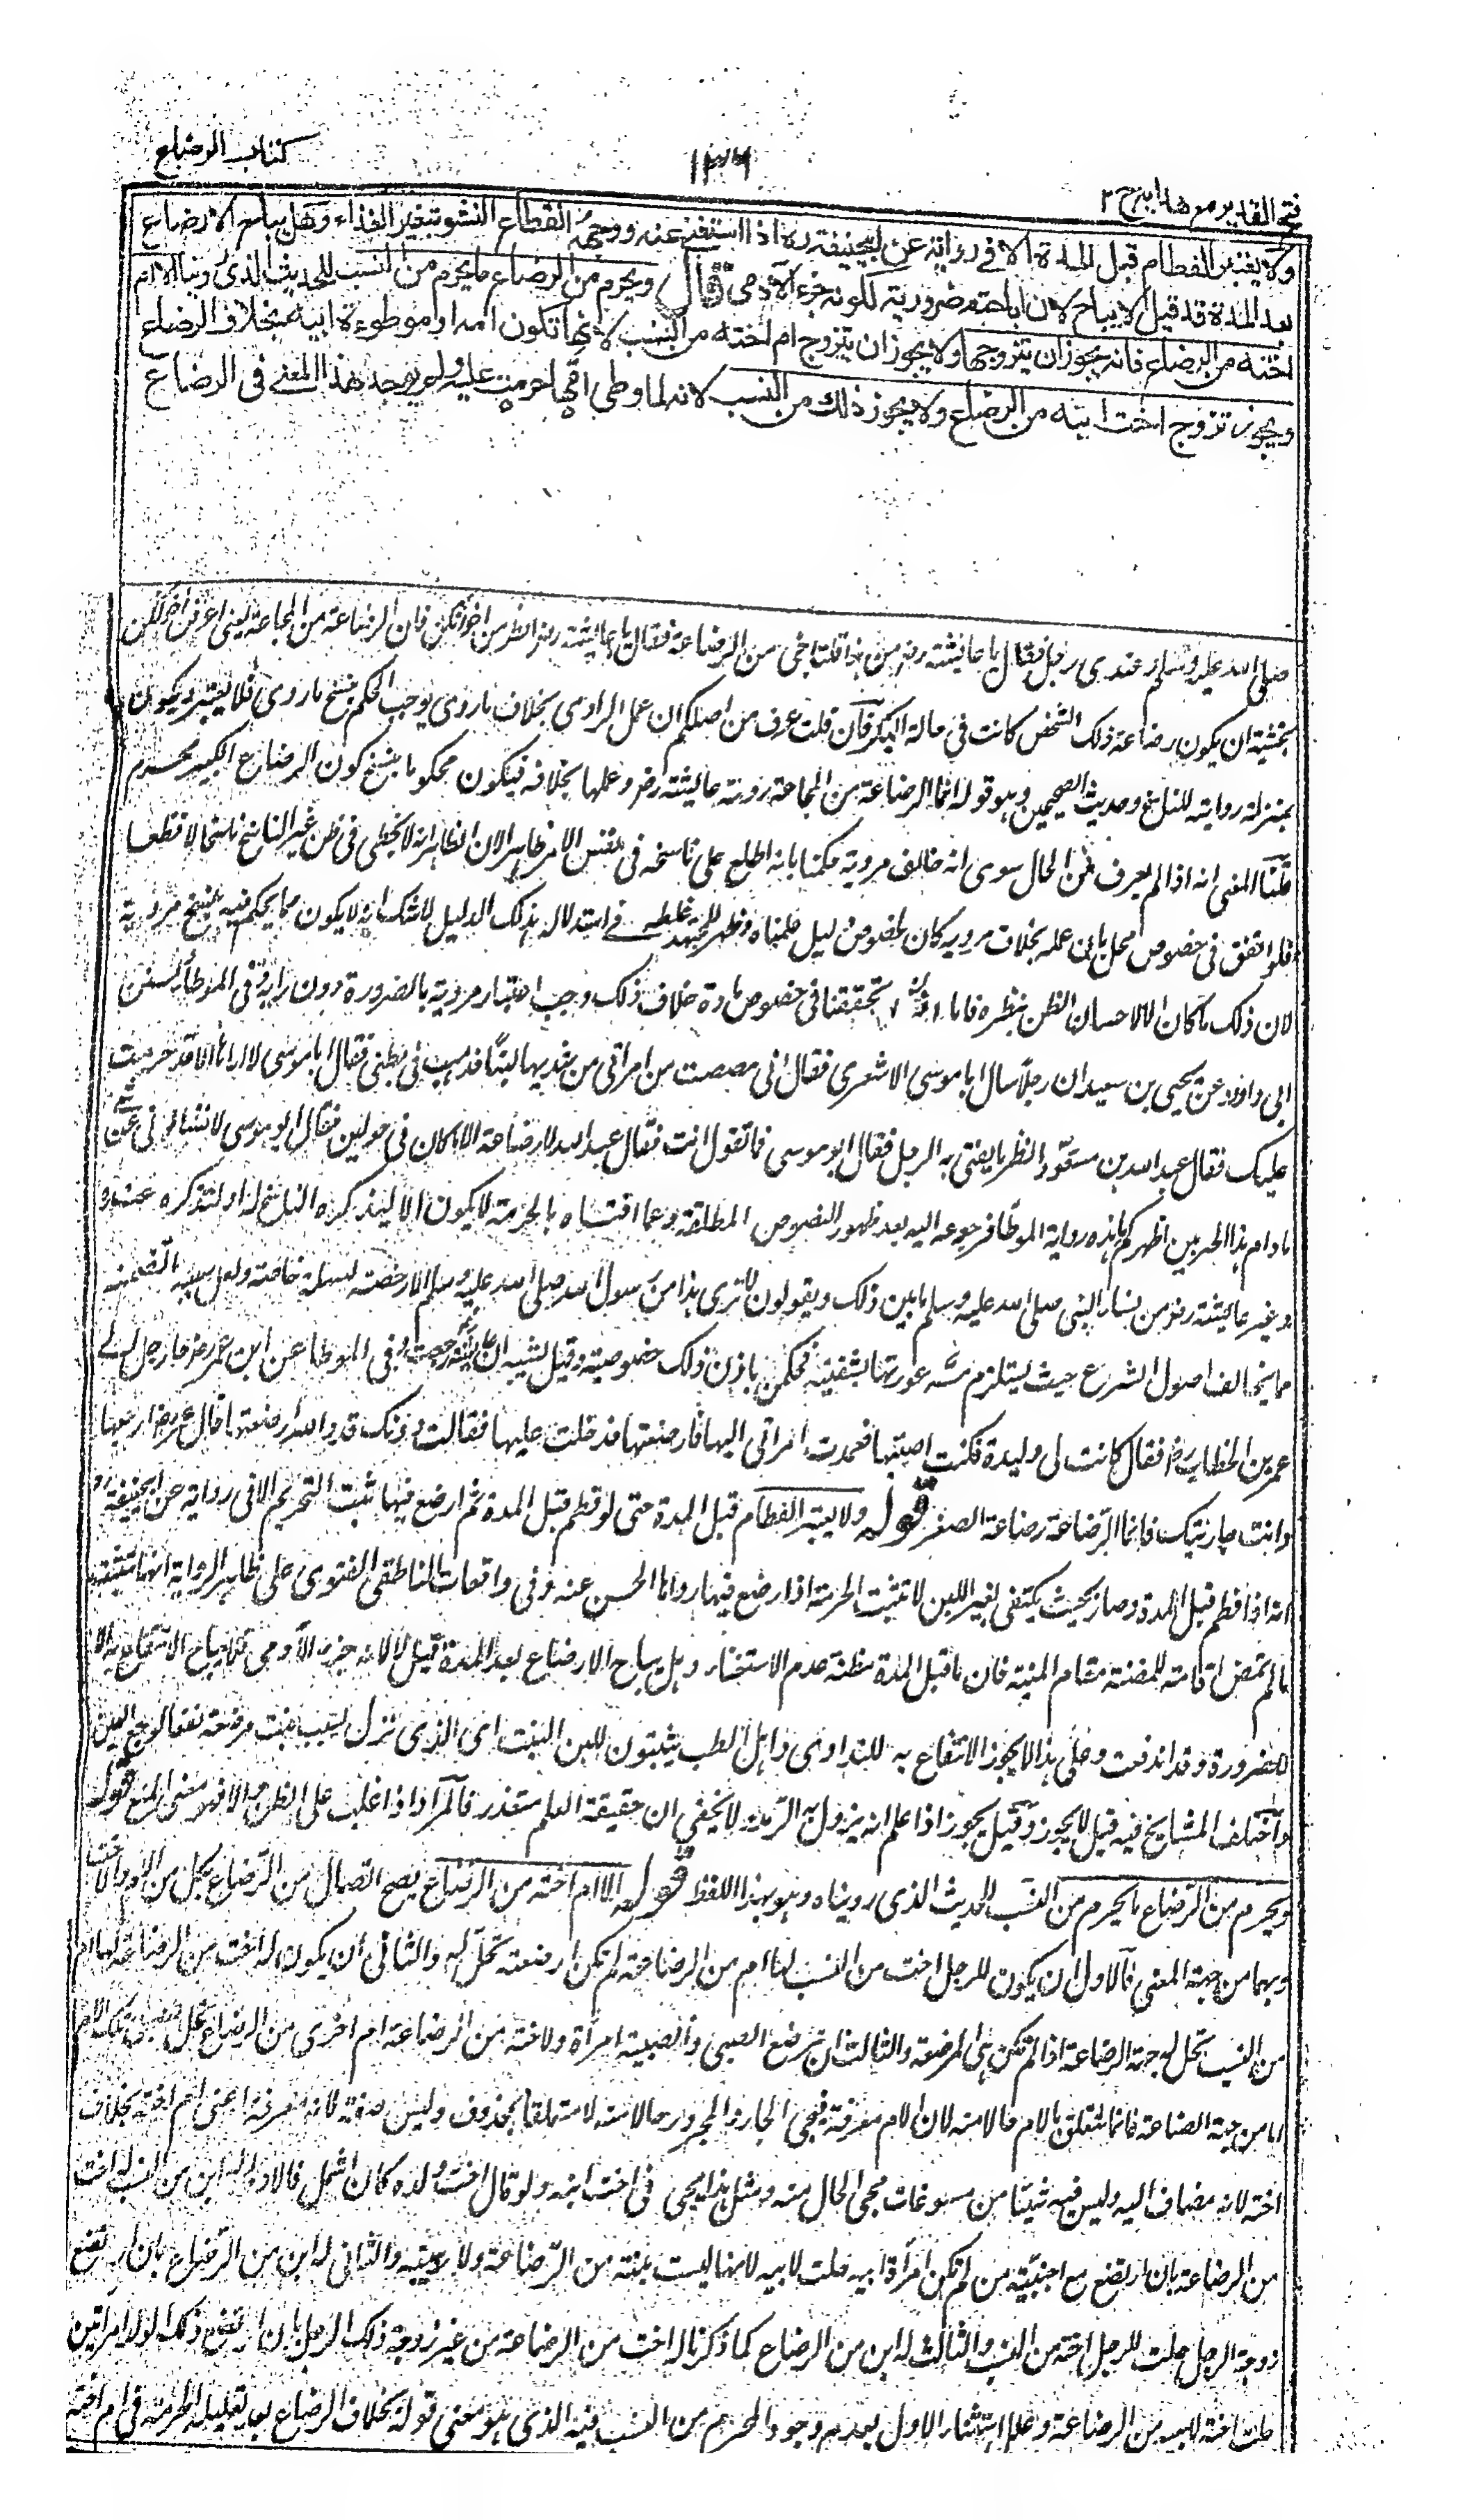 كتاب الرضاع
فتح القدير مع هدايه ج ٢
ولا يعتبر الفطام قبل المدة الا في رواية عن ابيحنيفة ره اذا استغنى عنه ووجهه انقطاع النشو بتغير الغذاء وهل يباح الارضاع
بعد المدة قد قيل لا يباح لان اباحته ضرورية لكونه جزء الآدمى قال ويحرم من الرضاع ما يحرم من النسب للحديث الذى روينا الا ام
اخته من الرضاع فانه يجوز ان يتزوجها ولا يجوز ان يتزوج ام اخته من النسب لانها تكون امه او موطوءة ابيه بخلاف الرضاع
ويجوز تزوج اخت ابنه من الرضاع ولا يجوز ذلك من النسب لانه لما وطى امها حرمت عليه ولم يوجد هذا المعنى فى الرضاع
صلى الله عليه وسلم وعندى رجل فقال يا عائشة رض من هذا قلت اخى من الرضاعة فقال يا عايشة رض انظرن من اخوانكن فان الرضاعة من المجاعة يعنى اعرفن اخوانكن
بخشية ان يكون رضاعة ذلك الشخص كانت في حالة الكبر فان قلت عرف من اصلكم ان عمل الراوى بخلاف ما روى يوجب الحكم بنسخ ما روى فلا يعتبر ويكون
بمنزلة روايته للناسخ وحديث الصحيحين وهو قوله انما الرضاعة من المجاعة روته عايشة رض وعملها بخلافه فيكون محكوما بنسخ كون الرضاع الكبير محرم
قلنا المعنى انه اذا لم يعرف من الحال سوى انه خالف مرويه حكمنا بانه اطلع على ناسخه فى نفس الامر ظاهرا لان الظاهر انه لا يخطى فى ظن غير الناسخ ناسخا لا قطعا
فلو اتفق فى خصوص محل بان عمله بخلاف مرويه كان لخصوص دليل علمناه وظهر للمجتهد غلطه في استدلاله بذلك الدليل لا شك انه لا يكون مما يحكم فيه بنسخ مرويه
لان ذلك ما كان الا لاحسان الظن بنظره فاما تحققنا فى خصوص مادة خلاف ذلك وجب اعتبار مرويه بالضرورة دون رايه وفى الموطأ وسنن
ابى داود عن يحيى بن سعيد ان رجلا سال ابا موسى الاشعرى فقال انى مصصت من امراتى من ثديها لبنا فذهب فى بطنى فقال ابا موسى لا اراها الا قد حرمت
عليك فقال عبد الله بن مسعود انظر ما يفتى به الرجل فقال ابو موسى فما تقول انت فقال عبد الله لا رضاعة الا ما كان فى حولين فقال ابو موسى لا تسألونى عن شيء
ما دام هذا الحبر بين اظهركم هذه رواية الموطأ فرجوعه اليه بعد ظهور النصوص المطلقة وعما افتاه بالحرمة لا يكون الا لذكره الناسخ له او لتذكره عنده
وغير عايشة رض من نساء النبى صلى الله عليه وسلم يابين ذلك ويقولون لا نرى هذا من رسول الله صلى الله عليه وسلم الا رخصة لسهلة خاصة ولعل سببه
مما يخالف اصول الشرع حيث يستلزم مس عورتها بشفتيه فحكمن بان ذلك خصوصية وقيل يشبه ان عايشة رض رجعت وفى الموطا عن ابن عمر رض جاء رجل الى
عمر بن الخطاب رض فقال كانت لى وليدة فكنت اصيبها فعمدت امراتى اليها فارضعتها فدخلت عليها فقالت دونك قد والله ارضعتها قال عمر رض ارجعها
وانت جاريتك فانما الرضاعة رضاعة الصغر قوله ولا يعتبر الفطام قبل المدة حتى لو فطم قبل المدة ثم ارضع فيها ثبت التحريم الا فى رواية عن ابيحنيفة ره
انه اذا فطم قبل المدة وصار بحيث يكتفى بغير اللبن لا تثبت الحرمة اذا رضع فيها رواها الحسن عنه وفى واقعات الناطقى الفتوى على ظاهر الرواية انها تثبت
ما لم تمض اقامة للمظنة مقام المئنة فان ما قبل المدة مظنة عدم الاستغناء وهل يباح الارضاع بعد المدة قيل لا لانه جزء الآدمى فلا يباح الانتفاع به الا
للضرورة وقد اندفعت وعلى هذا لا يجوز الانتفاع به للتداوى واهل الطب يثبتون للبن البنت اى الذى نزل بسبب بنت مرضعة نفعا لوجع العين
واختلف المشايخ فيه قيل لا يجوز وقيل يجوز اذا علم انه يزول به الرمد ولا يخفى ان حقيقة العلم متعذر فالمراد اذا غلب على الظن والا فهو معنى المنع قوله
ويحرم من الرضاع ما يحرم من النسب للحديث الذى رويناه وهو بهذا اللفظ قوله الا ام اخته من الرضاع يصح اتصال من الرضاع بكل من الام والاخت
وبهما من جهة المعنى فالاول ان يكون للرجل اخت من النسب لها ام من الرضاعة لم تكن ارضعته تحل له والثانى ان يكون له اخت من الرضاعة لها ام
من النسب تحل له جهة الرضاعة اذا لم تكن هى المرضعة والثالث ان ترضع الصبى والصبية امرأة ولاخته من الرضاعة ام اخرى من الرضاع تحل تلك الام
اما من جهة الصناعة فانما يتعلق بالام حالا منه لان الام معرفة فيجئ الجار والمجرور حالا منه لا متعلقا بمحذوف وليس صفة لانه معرفة اعنى ام اخته بخلاف
اخته لانه مضاف اليه وليس فيه شيئا من مسوغات مجئ الحال منه ومثل هذا يجئ فى اخت ابنه ولو قال اخت ولده كان اشمل فالاول له ابن من النسب له اخت
من الرضاعة بان ارتضع مع اجنبية من لم تكن امرأة ابيه حلت لابيه لانها ليست بنته من الرضاعة ولا ربيبته والثانى له ابن من الرضاع بان ارتضع
زوجة الرجل حلت للرجل اخته من النسب والثالث له ابن من الرضاع كما ذكرنا له اخت من الرضاعة من غير زوجة ذلك الرجل بان ارتضع ذلك الولد امراتين
حلت اخته لابيه من الرضاعة وعلل استثناء الاول بعدم وجود المحرم من النسب فيه الذى هو معنى قوله بخلاف الرضاع بعد تعليله الحرمة فى ام اخته